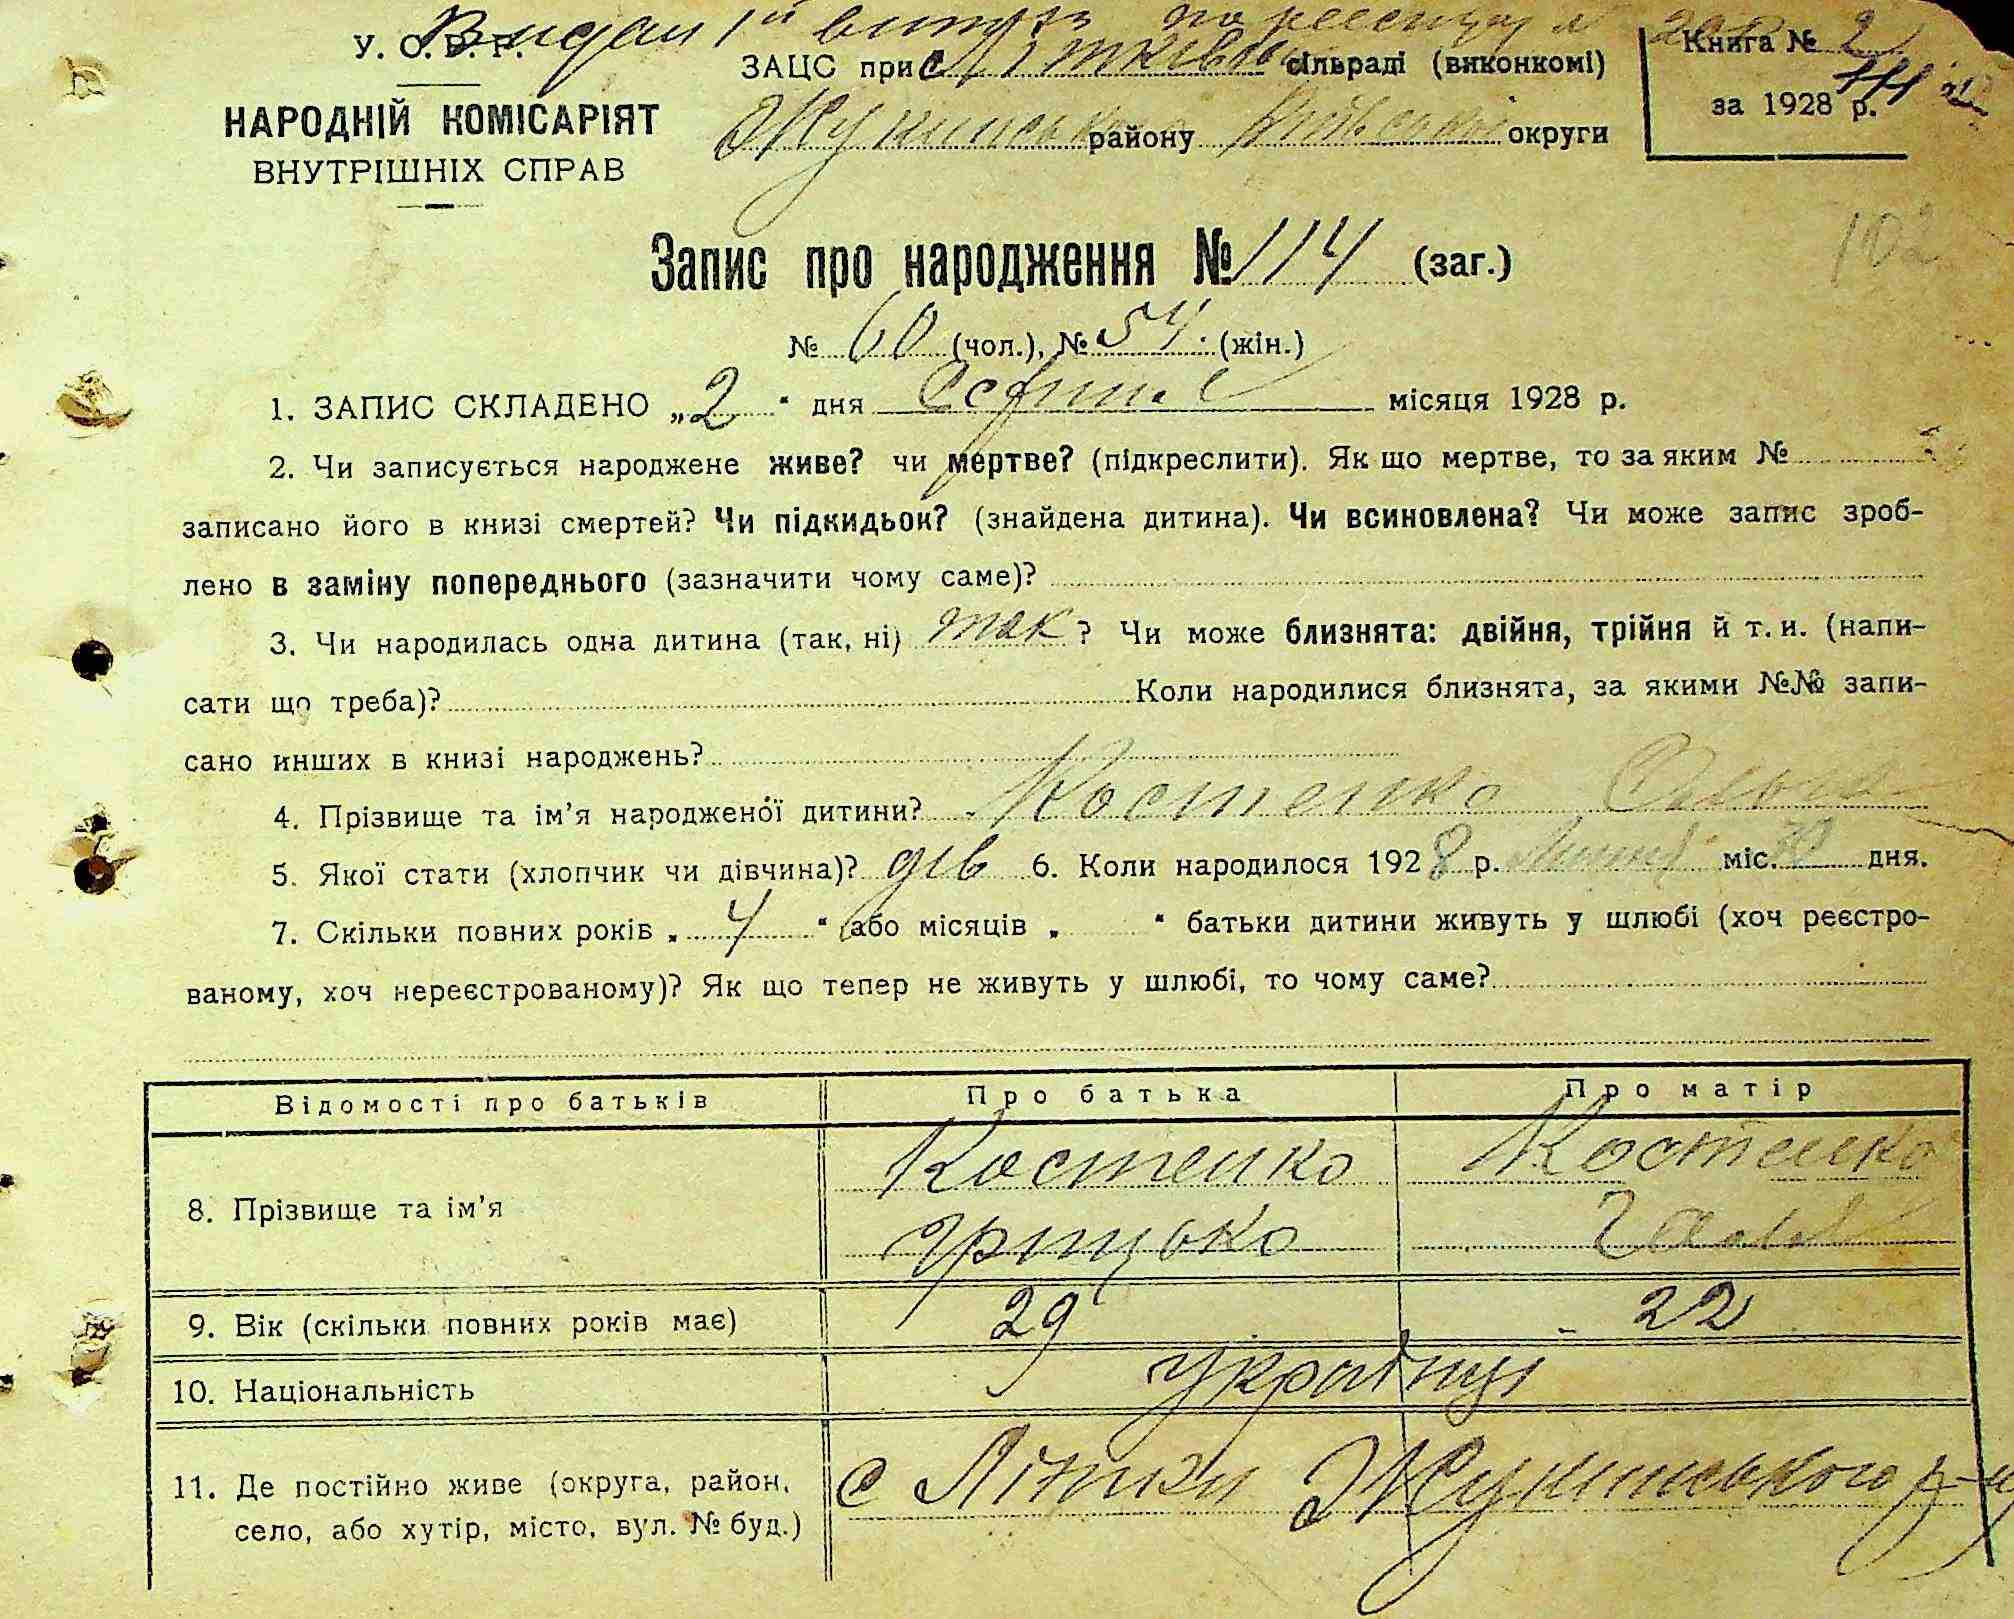 Видан 1й витяг по реєстру №
У. С. Р. Р.
ЗАЦС при с Літківськ сільраді (виконкомі)
Книга № 2
НАРОДНІЙ КОМІСАРІЯТ
ВНУТРІШНІХ СПРАВ
Жукинськ району Київської округи
за 1928 р.
102
Запис про народження № 114 (заг.)
№ 60 (чол.), № 54. (жін.)
1. ЗАПИС СКЛАДЕНО „2" дня Серпня місяця 1928 р.
2. Чи записується народжене живе? чи мертве? (підкреслити). Як що мертве, то за яким №
записано його в книзі смертей? Чи підкидьок? (знайдена дитина). Чи всиновлена? Чи може запис зроб-
лено в заміну попереднього (зазначити чому саме)?
3. Чи народилась одна дитина (так, ні) так ? Чи може близнята: двійня, трійня й т. и. (напи-
сати що треба)? Коли народилися близнята, за якими №№ запи-
сано инших в книзі народжень?
4. Прізвище та ім'я народженої дитини? Костенко Ольга
5. Якої стати (хлопчик чи дівчина)? дів 6. Коли народилося 1928 р. Липня міс. 30 дня.
7. Скільки повних років „ 4 " або місяців „ " батьки дитини живуть у шлюбі (хоч реєстро-
ваному, хоч нереєстрованому)? Як що тепер не живуть у шлюбі, то чому саме?
Відомості про батьків Про батька Про матір
8. Прізвище та ім'я Костенко Костенко
Грицько Галя
9. Вік (скільки повних років має) 29 22
10. Національність українці
11. Де постійно живе (округа, район,
село, або хутір, місто, вул. № буд.)
с Літки Жукинського р-у